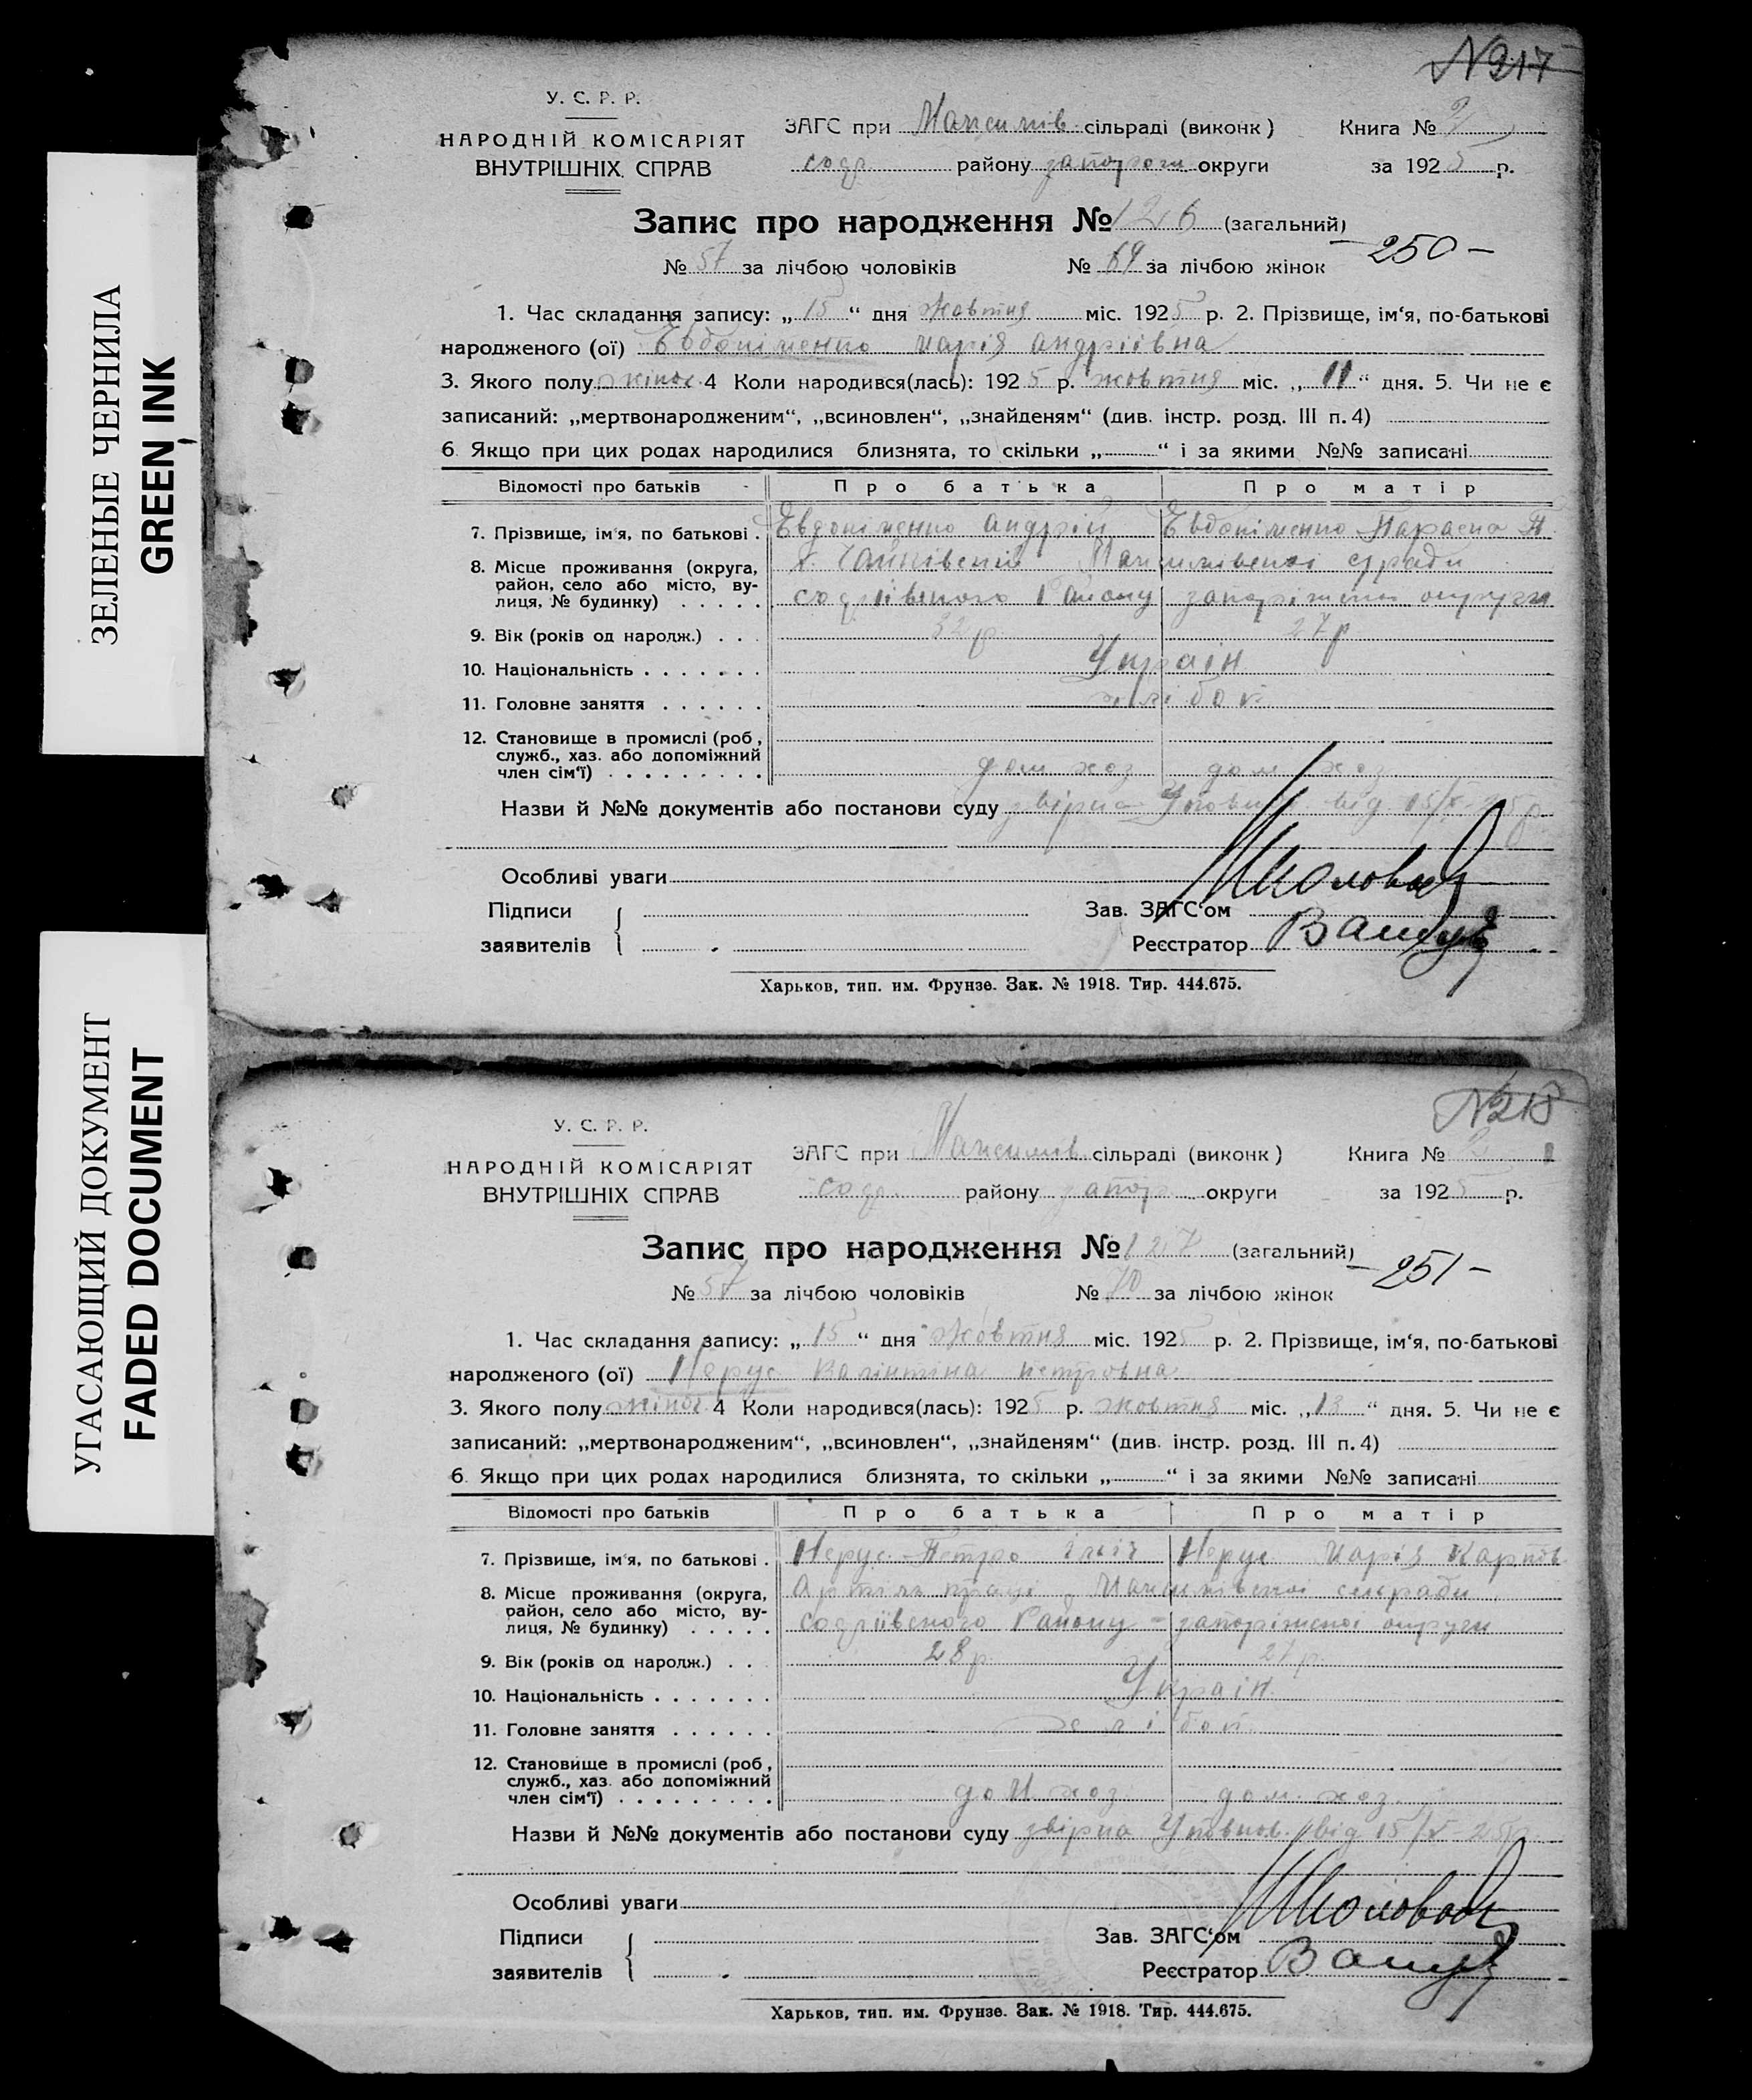 ЗЕЛЕНЫЕ ЧЕРНИЛА
GREEN INK
УГАСАЮЩИЙ ДОКУМЕНТ
FADED DOCUMENT
N 217
У. С. Р. Р.
НАРОДНІЙ КОМІСАРІЯТ
ВНУТРІШНІХ СПРАВ
ЗАГС при сільраді (виконк) Книга №
району округи за 1925 р.
Запис про народження № 126 (загальний)
- 250 -
№ 57 за лічбою чоловіків № 69 за лічбою жінок
1. Час складання запису: „15“ дня жовтня міс. 1925 р. 2. Прізвище, ім‘я, по-батькові
народженого (ої) Марія Андріівна
3. Якого полу жіноч. 4 Коли народився(лась): 1925 р. жовтня міс. „11“ дня. 5. Чи не є
записаний: „мертвонародженим“, „всиновлен“, „знайденям“ (див. інстр. розд. III п. 4)
6. Якщо при цих родах народилися близнята, то скільки „ “ і за якими №№ записані
Відомості про батьків Про батька Про матір
7. Прізвище, ім‘я, по батькові . Андрій
8. Місце проживання (округа,
район, село або місто, ву-
лиця, № будинку) . . . . . Району округи
9. Вік (років од народж.) . . . 32 р. 27 р.
10. Національність . . . . . . . Украін
11. Головне заняття . . . . . . хлібоп.
12. Становище в промислі (роб.,
служб., хаз. або допоміжний
член сім‘ї) . . . . . . . . . дом хоз дом хоз
Назви й №№ документів або постанови суду від 15/X-25р.
Особливі уваги
Підписи Зав. ЗАГС‘ом
заявителів Реєстратор
Харьков, тип. им. Фрунзе. Зак. № 1918. Тир. 444.675.
N 218
У. С. Р. Р.
НАРОДНІЙ КОМІСАРІЯТ
ВНУТРІШНІХ СПРАВ
ЗАГС при сільраді (виконк) Книга №
району запор. округи за 1925 р.
Запис про народження № 127 (загальний)
- 251 -
№ 57 за лічбою чоловіків № 70 за лічбою жінок
1. Час складання запису: „15“ дня Жовтня міс. 1925 р. 2. Прізвище, ім‘я, по-батькові
народженого (ої) Нерус Валінтіна Петровна
3. Якого полу жіноч. 4 Коли народився(лась): 1925 р. жовтня міс. „13“ дня. 5. Чи не є
записаний: „мертвонародженим“, „всиновлен“, „знайденям“ (див. інстр. розд. III п. 4)
6. Якщо при цих родах народилися близнята, то скільки „ “ і за якими №№ записані
Відомості про батьків Про батька Про матір
7. Прізвище, ім‘я, по батькові . Нерус Петро Ілліч Нерус Марія Карпов
8. Місце проживання (округа,
район, село або місто, ву-
лиця, № будинку) . . . . . Району округи
9. Вік (років од народж.) . . . 28 р. 27 р.
10. Національність . . . . . . . Украін.
11. Головне заняття . . . . . . хлібоп.
12. Становище в промислі (роб.,
служб., хаз. або допоміжний
член сім‘ї) . . . . . . . . . дом хоз. дом. хоз.
Назви й №№ документів або постанови суду від 15/X-25р.
Особливі уваги
Підписи Зав. ЗАГС‘ом
заявителів Реєстратор
Харьков, тип. им. Фрунзе. Зак. № 1918. Тир. 444.675.